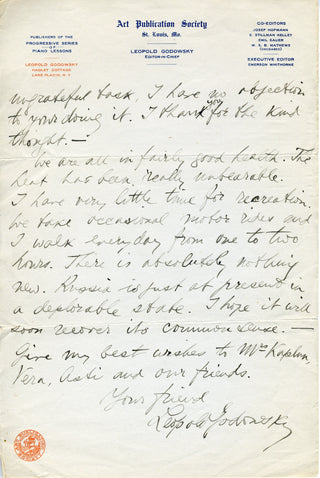 Art Publication Society
St. Louis, Mo.
LEOPOLD GODOWSKY
EDITOR-IN-CHIEF
PUBLISHERS OF THE
PROGRESSIVE SERIES
OF
PIANO LESSONS
LEOPOLD GODOWSKY
HAGLET COTTAGE
LAKE PLACID, N.Y.
CO-EDITORS
JOSEF HOFMANN
E. STILLMAN KELLEY
EMIL SAUER
W. S. B. MATHEWS
(DECEASED)
EXECUTIVE EDITOR
EMERSON WHITHORNE
ungrateful task, I have no objection
to your doing it. I thank you for the kind
thought.—
We are all in fairly good health. The
heat has been really unbearable.
I have very little time for recreation.
We take occasional motor rides and
I walk everyday from one to two
hours. There is absolutely nothing
new. Russia is just at present in
a deplorable state. I hope it will
soon recover its common sense.—
Give my best wishes to Mrs Kaplun,
Vera, Asti and our friends.
Your friend
Leopold Godowsky